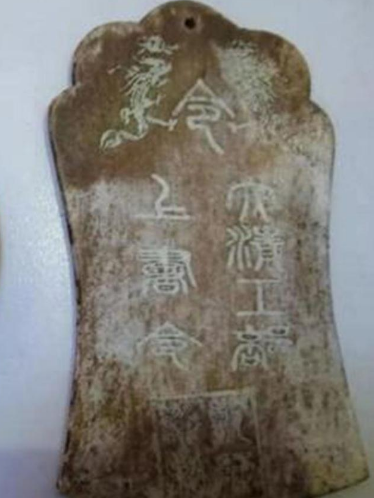 令
大清工部
上書令